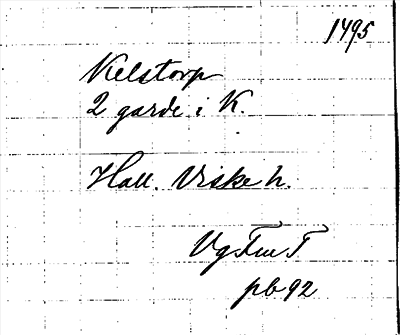 1495
Kelstorp
2 garde i K.
Hall. Viske h.
VgFmT
pb 92